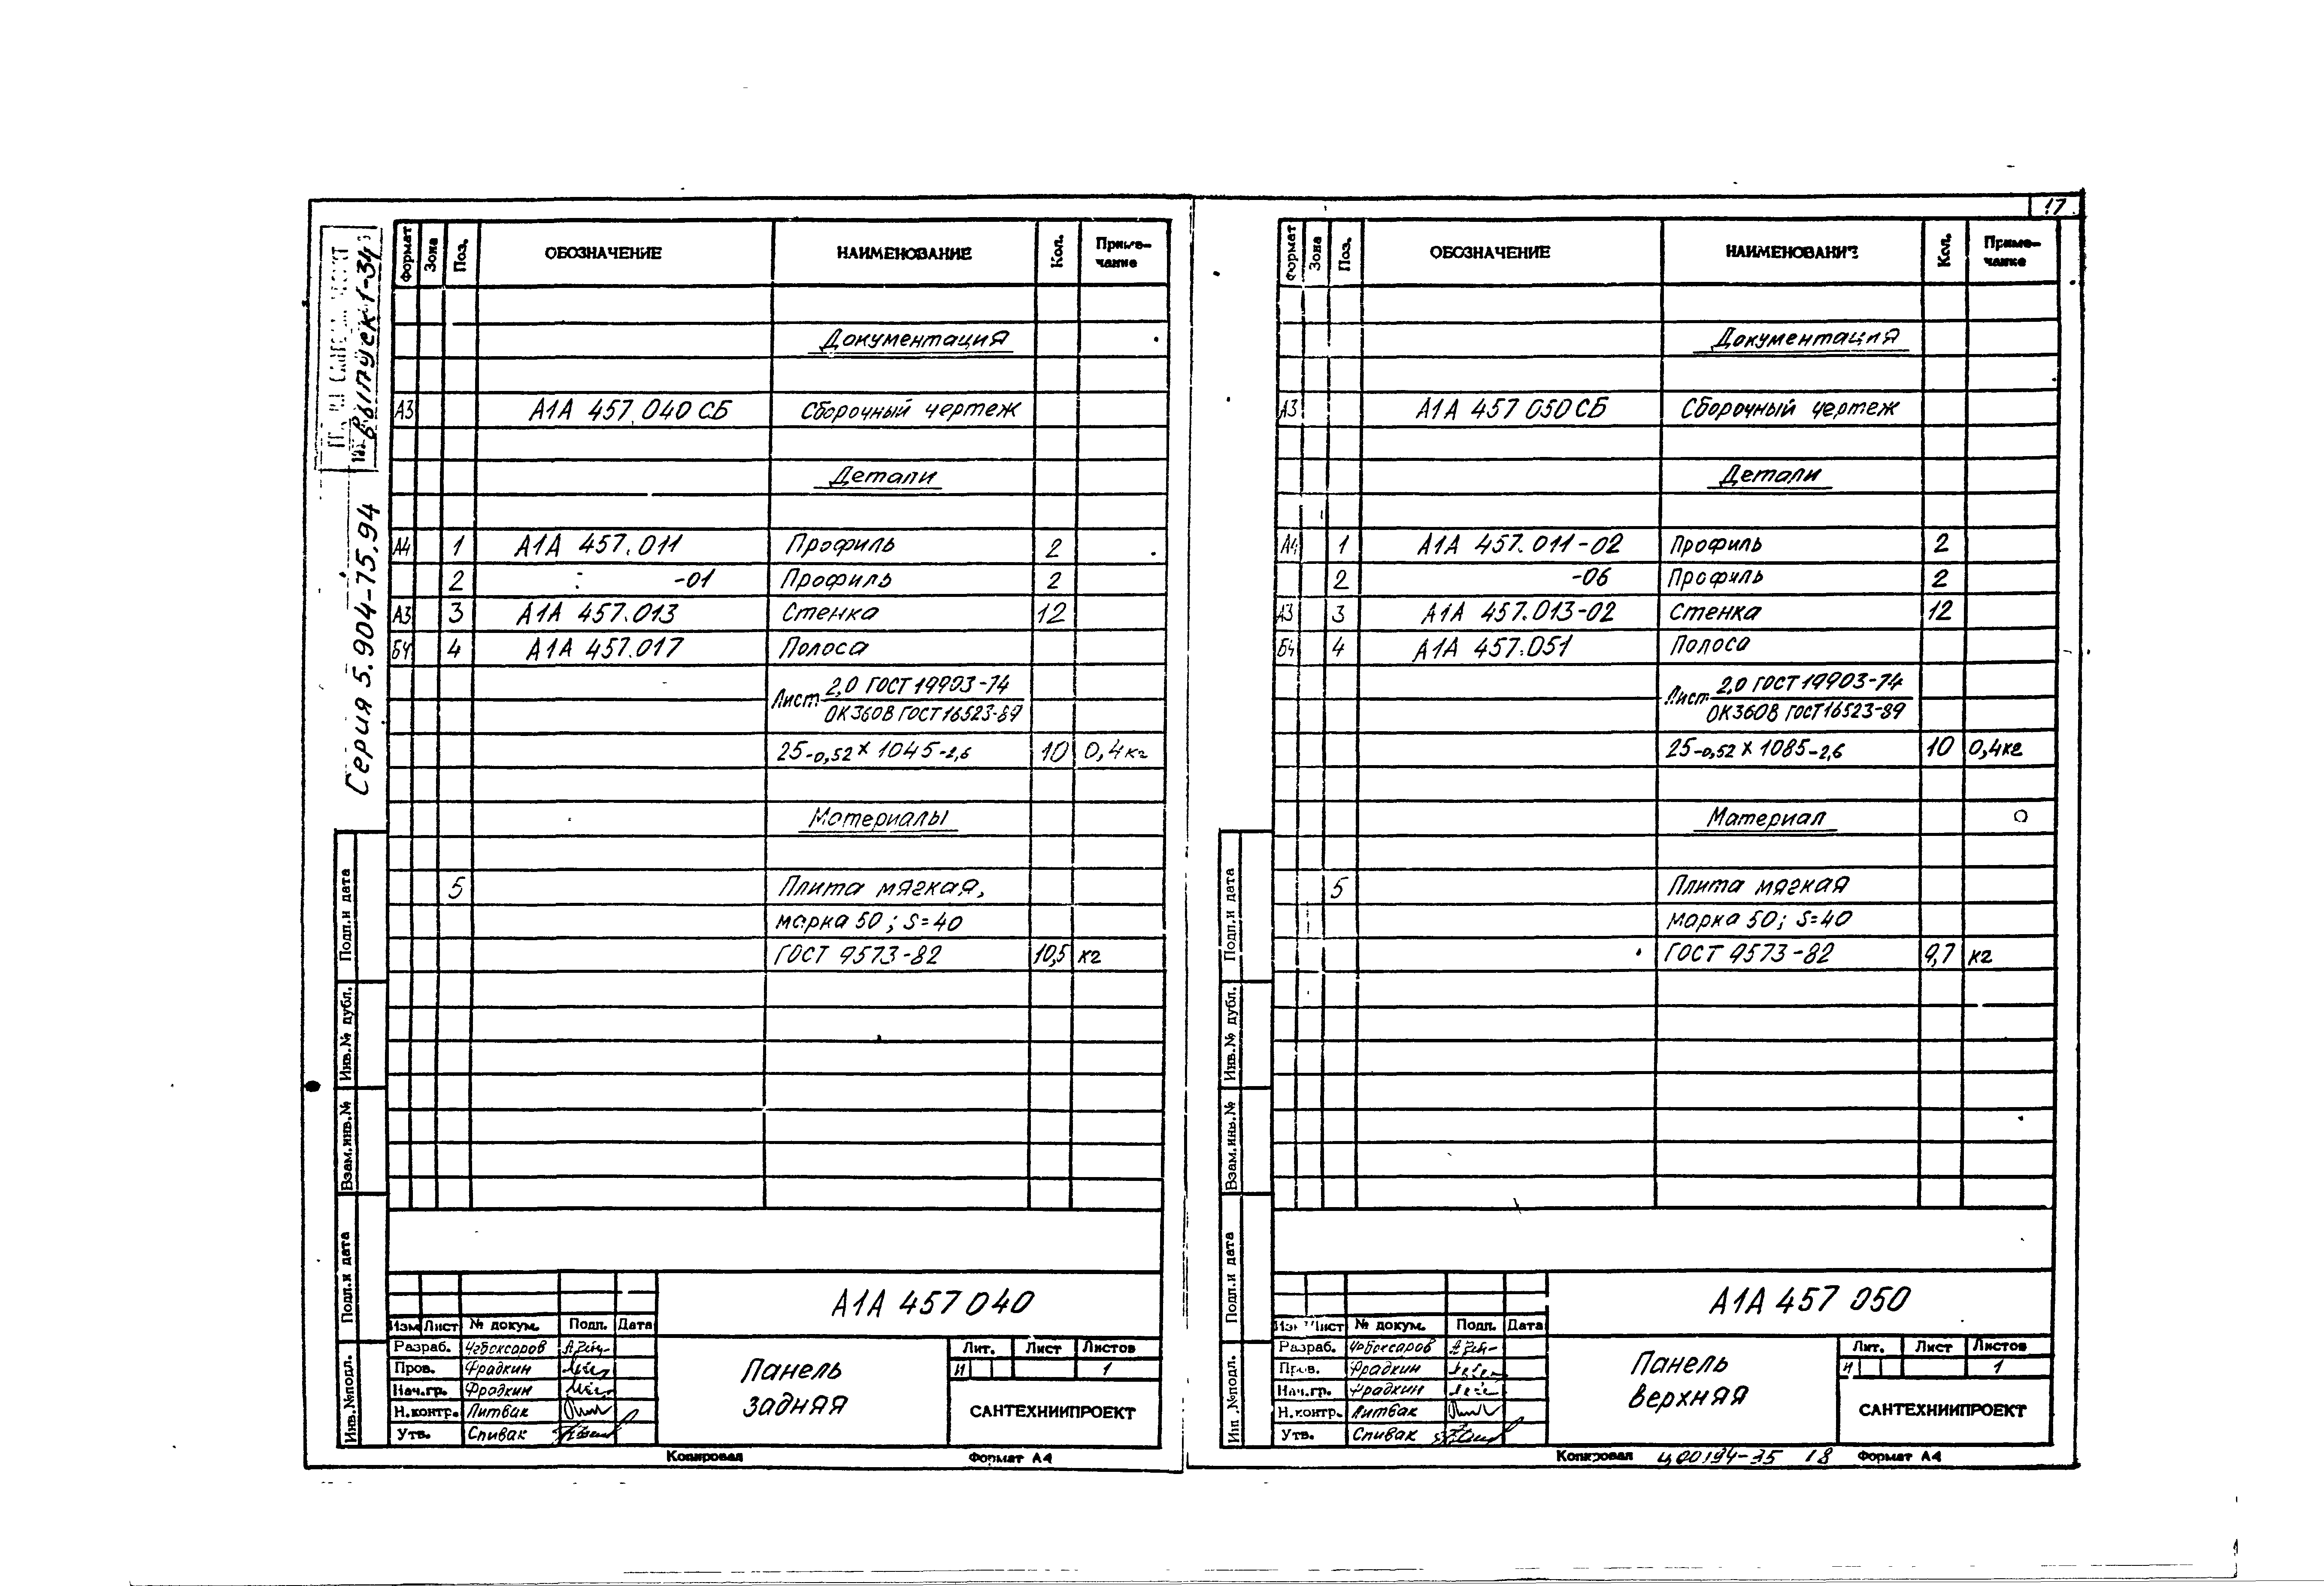 17
Серия 5.904-75.94
Выпуск 1-34
Формат Зона Поз. ОБОЗНАЧЕНИЕ НАИМЕНОВАНИЕ Кол. Приме-
чание
Документация
А3 А1А 457.040 СБ Сборочный чертеж
Детали
А4 1 А1А 457.011 Профиль 2
2 -01 Профиль 2
А3 3 А1А 457.013 Стенка 12
Б4 4 А1А 457.017 Полоса
Лист 2,0 ГОСТ 19903-74
ОК360В ГОСТ 16523-89
25-0,52 х 1045-2,6 10 0,4кг
Материалы
5 Плита мягкая,
марка 50; S=40
ГОСТ 9573-82 10,5 кг
Подп.и дата
Инв.№ дубл.
Взам.инв.№
Подп.и дата
Инв.№подл.
А1А 457 040
Изм Лист № докум. Подп. Дата
Разраб. Чебоксаров
Пров. Фрадкин
Нач.гр. Фрадкин
Н.контр. Литвак
Утв. Спивак
Панель
задняя
Лит. Лист Листов
И 1
САНТЕХНИИПРОЕКТ
Копировал Формат А4
Формат Зона Поз. ОБОЗНАЧЕНИЕ НАИМЕНОВАНИЕ Кол. Приме-
чание
Документация
А3 А1А 457 050 СБ Сборочный чертеж
Детали
А4 1 А1А 457.011-02 Профиль 2
2 -06 Профиль 2
А3 3 А1А 457.013-02 Стенка 12
Б4 4 А1А 457.051 Полоса
Лист 2,0 ГОСТ 19903-74
ОК360В ГОСТ 16523-89
25-0,52 х 1085-2,6 10 0,4кг
Материал
5 Плита мягкая
марка 50; S=40
ГОСТ 9573-82 9,7 кг
Подп.и дата
Инв.№ дубл.
Взам.инв.№
Подп.и дата
Инв.№подл.
А1А 457 050
Изм Лист № докум. Подп. Дата
Разраб. Чебоксаров
Пров. Фрадкин
Нач.гр. Фрадкин
Н.контр. Литвак
Утв. Спивак
Панель
верхняя
Лит. Лист Листов
И 1
САНТЕХНИИПРОЕКТ
Копировал ц00194-35 18 Формат А4